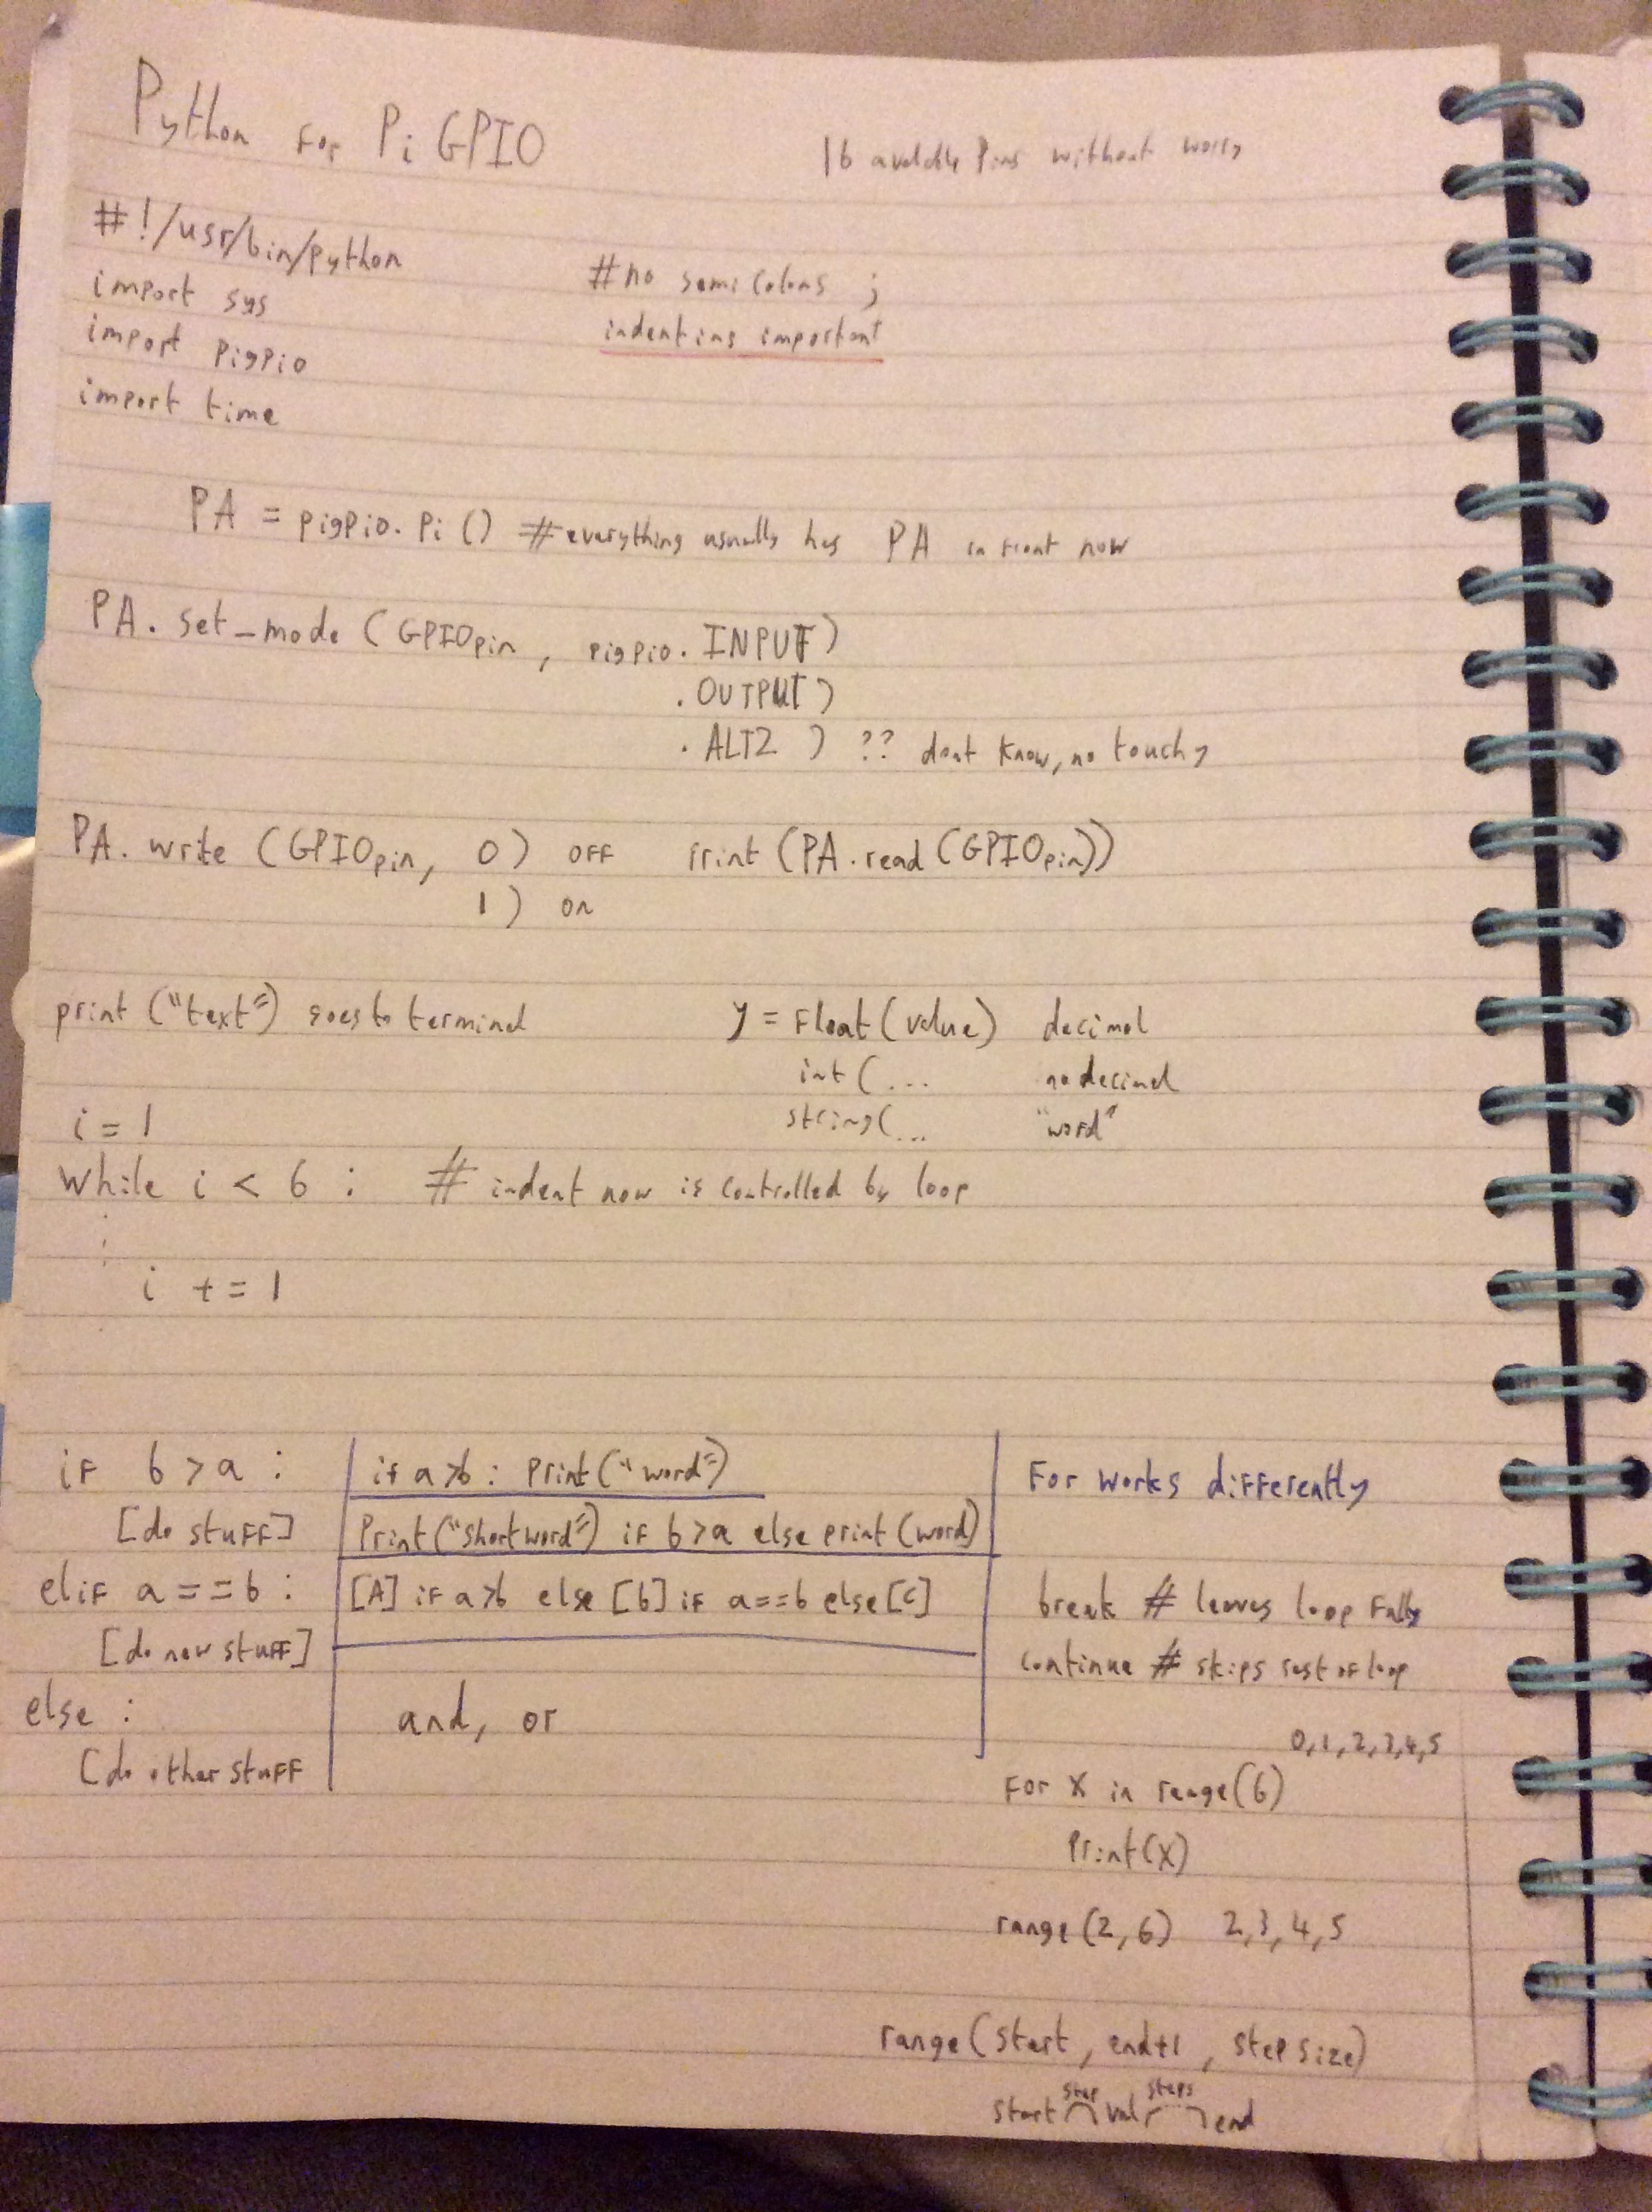 Python for Pi GPIO
16 available Pins without worry
#!/usr/bin/python
import sys
import pigpio
import time
#no semi colons ;
indenting important
PA = pigpio.Pi () #everything usually has PA in front now
PA. set_mode (GPIOpin, pigpio. INPUT)
.OUTPUT)
.ALT2 ) ?? dont know, no touchy
PA. write (GPIOpin, 0) off print (PA.read (GPIOpin))
1) on
print ("text") goes to terminal
y = float (value) decimal
int (... no decimal
string(... "word"
i = 1
while i < 6 : # indent now is controlled by loop
i += 1
if b > a :
[do stuff]
elif a == b :
[do new stuff]
else :
[do other stuff
if a > b : print ("word")
Print ("shortword") if b > a else print (word)
[A] if a > b else [b] if a == b else [c]
and, or
For works differently
break # leaves loop fully
continue # skips rest of loop
0,1,2,3,4,5
For x in range(6)
Print(x)
range (2,6) 2,3,4,5
range (start, end+1, step size)
step steps
start val end